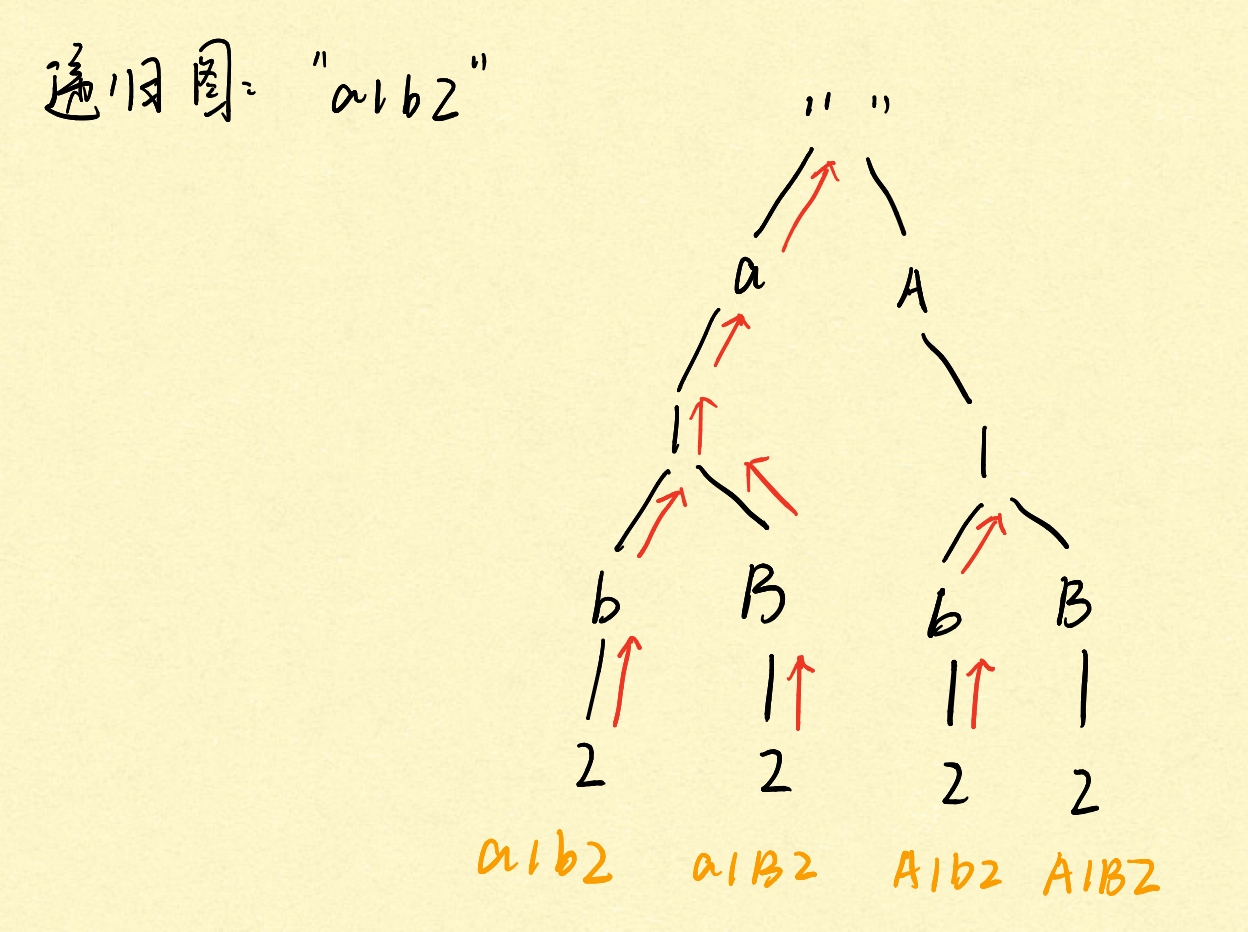 递归图: "a1b2"
" "
a A
1 1
b B b B
2 2 2 2
a1b2 a1B2 A1b2 A1B2